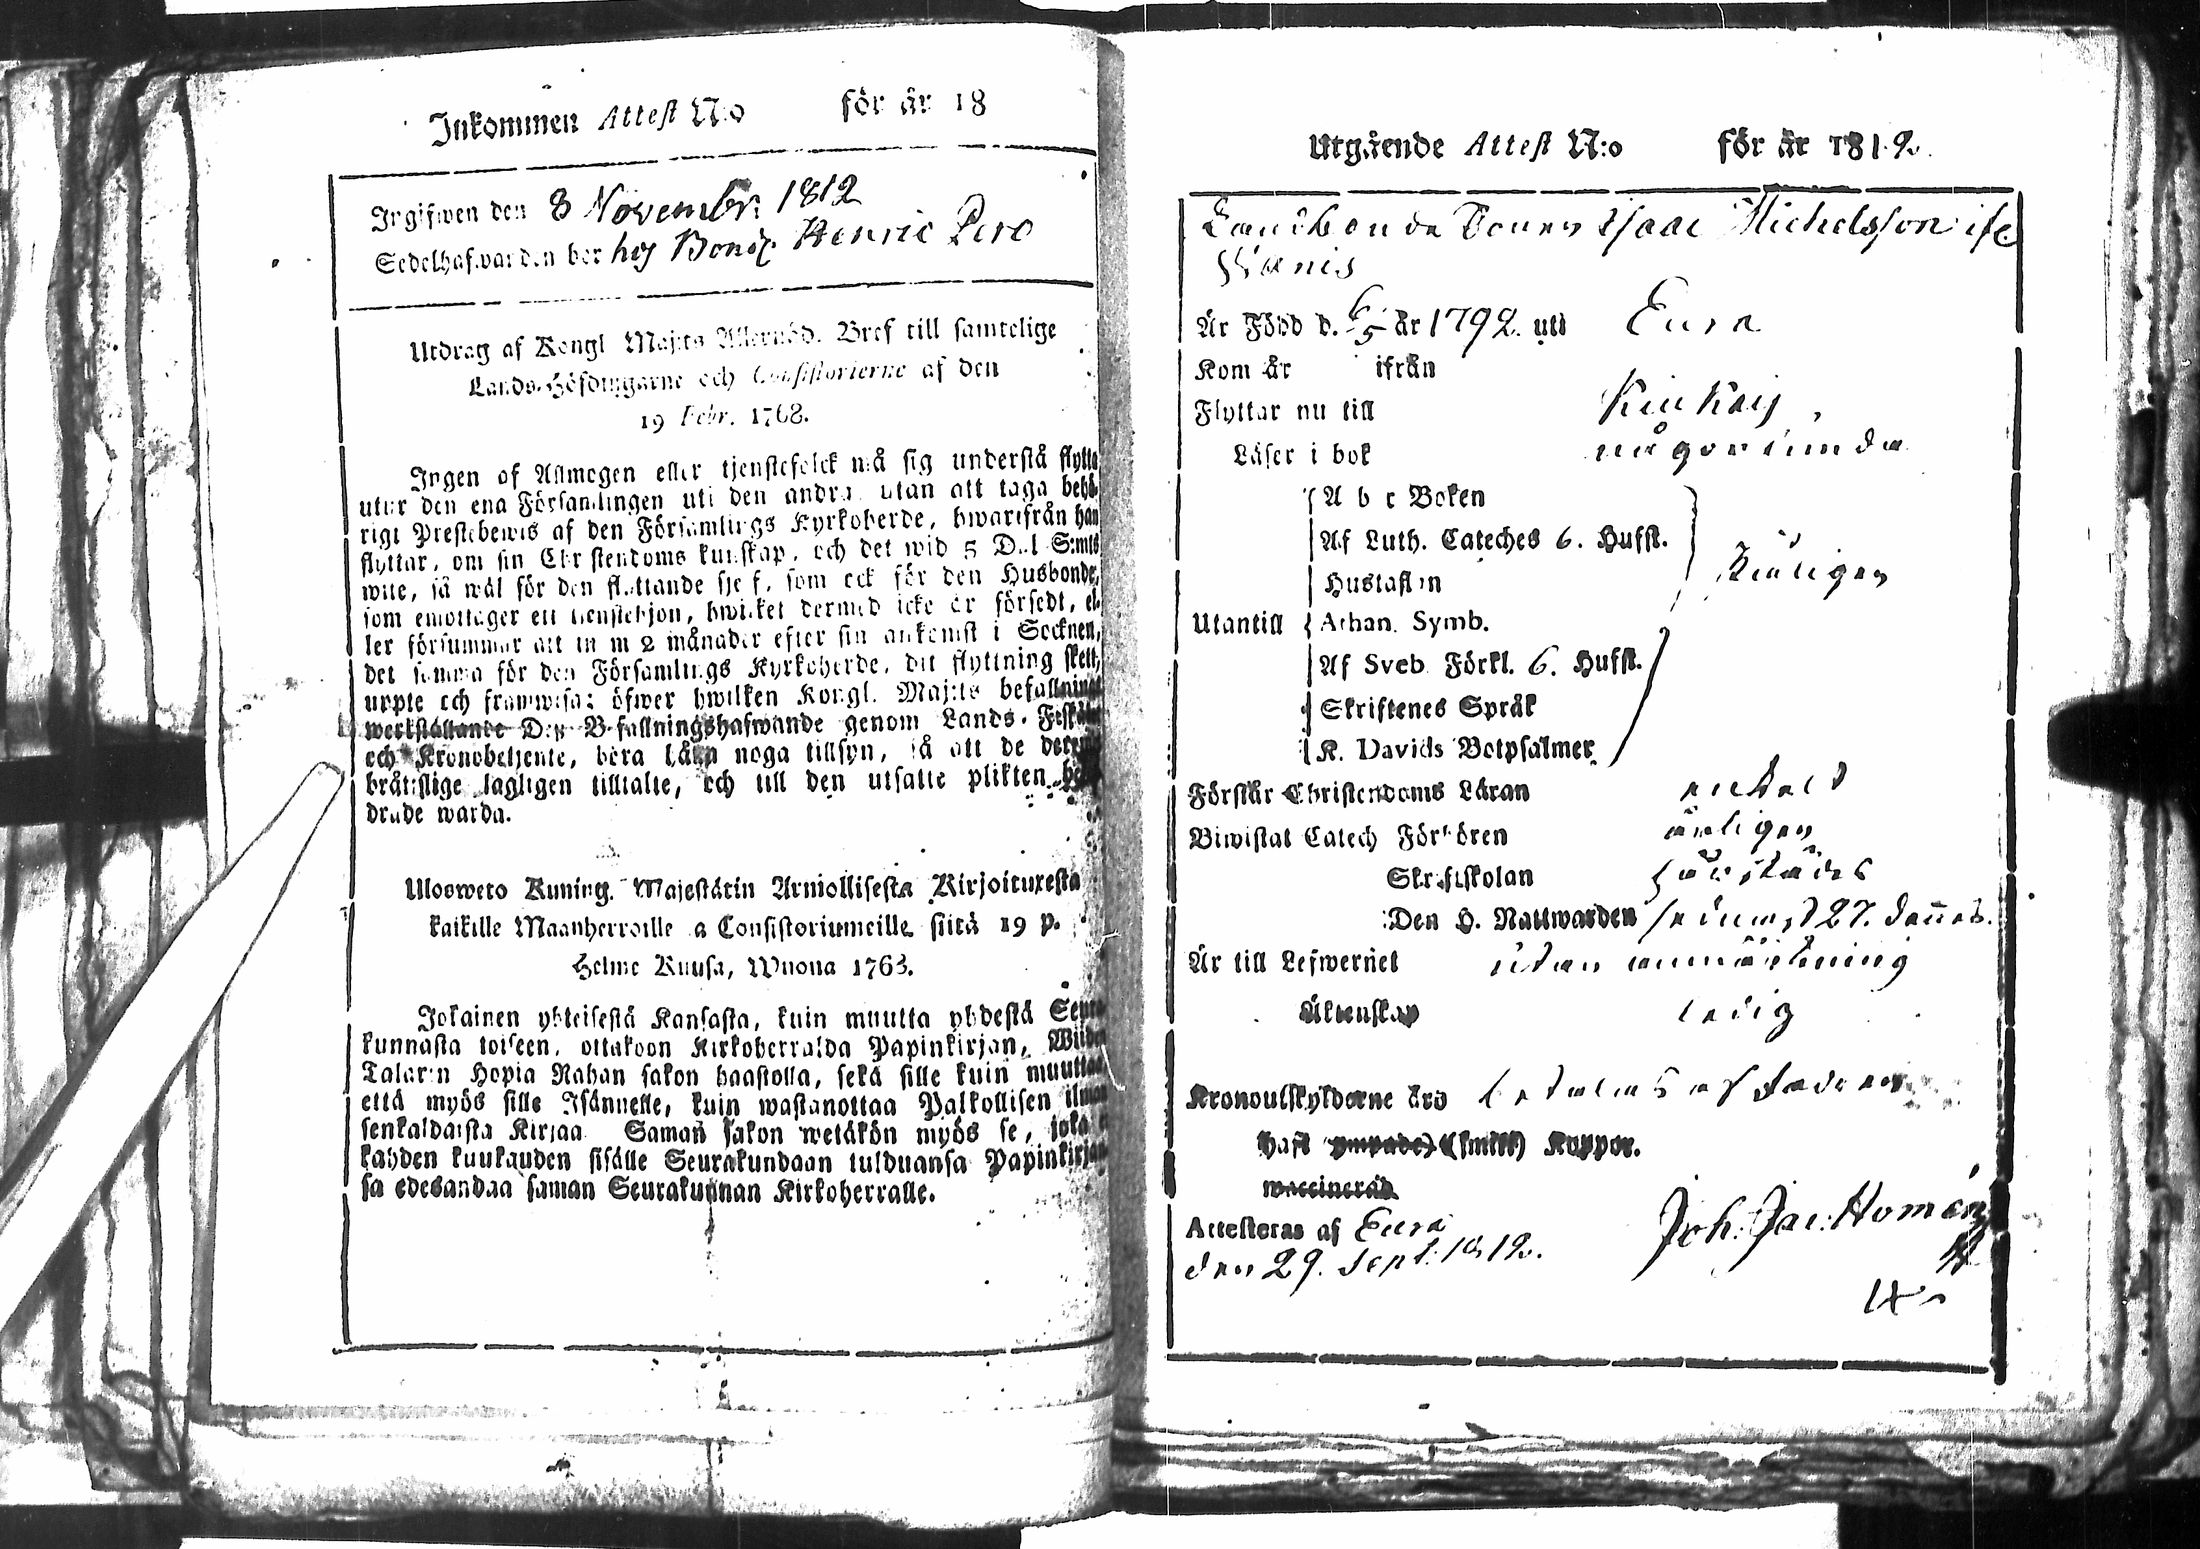 Inkommen Attest N:o för år 18
Ingifwen den 8 Novembr: 1812
Sedelhafwarden bor hos Bond: Henric Pero
Utdrag af Kongl Maj:ts Allernåd. Bref till samtelige
Lands-Höfdingarne och Consistorierne af den
19 Febr. 1768.
Ingen af Allmogen eller tjenstefolck må sig understå flytta
utur den ena Församlingen uti den andra, utan att taga behö-
rigt Prestebewis af den Församlings Kyrkoherde, hwarifrån han
flyttar, om sin Christendoms kunskap, och det wid 5 Dal S:mts
wite, så wäl för den flyttande sjelf, som ock för den Husbonde,
som emottager ett tienstehjon, hwilket dermed icke är försedt, el-
ler försummar att innom 2 månader efter sin ankomst i Socknen,
det samma för den Församlings Kyrkoherde, dit flyttning skett,
uppte och framwisa: öfwer hwilken Kongl. Maj:ts befallnings
werkställande Den Befallningshafwande genom Lands-Fiskäler
och Kronobetjente, böra låta noga tillsyn, så att de deremot
bråtslige lagligen tilltalte, och till den utsatte plikten
drade warda.
Ulosweto Kuning. Majestätin Armollisesta Kirjoituxesta
kaikille Maanherroille ja Consistoriumeille siitä 19 p.
Helme Kuusa, Wuona 1768.
Jokainen yhteisestä Kansasta, kuin muutta yhdestä Seura-
kunnasta toiseen, ottakoon Kirkoherralda Papinkirjan, Wiiden
Talarin Hopia Rahan sakon haastolla, sekä sille kuin muuttaa
että myös sille Isännelle, kuin wastanottaa Palkollisen ilman
senkaldaista Kirjaa Saman sakon wetäkön myös se, joka ei
kahden kuukauden sisälle Seurakundaan tulduansa Papinkirjan
sa edesandaa saman Seurakunnan Kirkoherralle.
Utgående Attest N:o för år 1812.
Landbonde Sonen Isaac Michelsson ifr
Wanis
Är Född d. 6/5 år 1792. uti Eura
Kom år ifrån
Flyttar nu till Kiukais,
Läser i bok någorlunda
A b c Boken
Af Luth. Cateches 6. Hufst.
Hustaflan
Utantill Athan. Symb.
Af Sveb. Förkl. 6. Hufst.
Skriftenes Språk
K. Davids Botpsalmer
Förstår Christendoms Läran enkelt
Biwistat Catech Förhören årligen
Skriftskolan härstädes
Den H. Nattwarden 27.
Är till Lefwernet utan anmärkning
Äktenskap ledig
Kronoutskylderne äro betalas af fadren
Haft ympade) (smitt) Koppor.
waccinerad
Attesteras af Eura
den 29. Sept. 1812. Joh: Jac: Homén